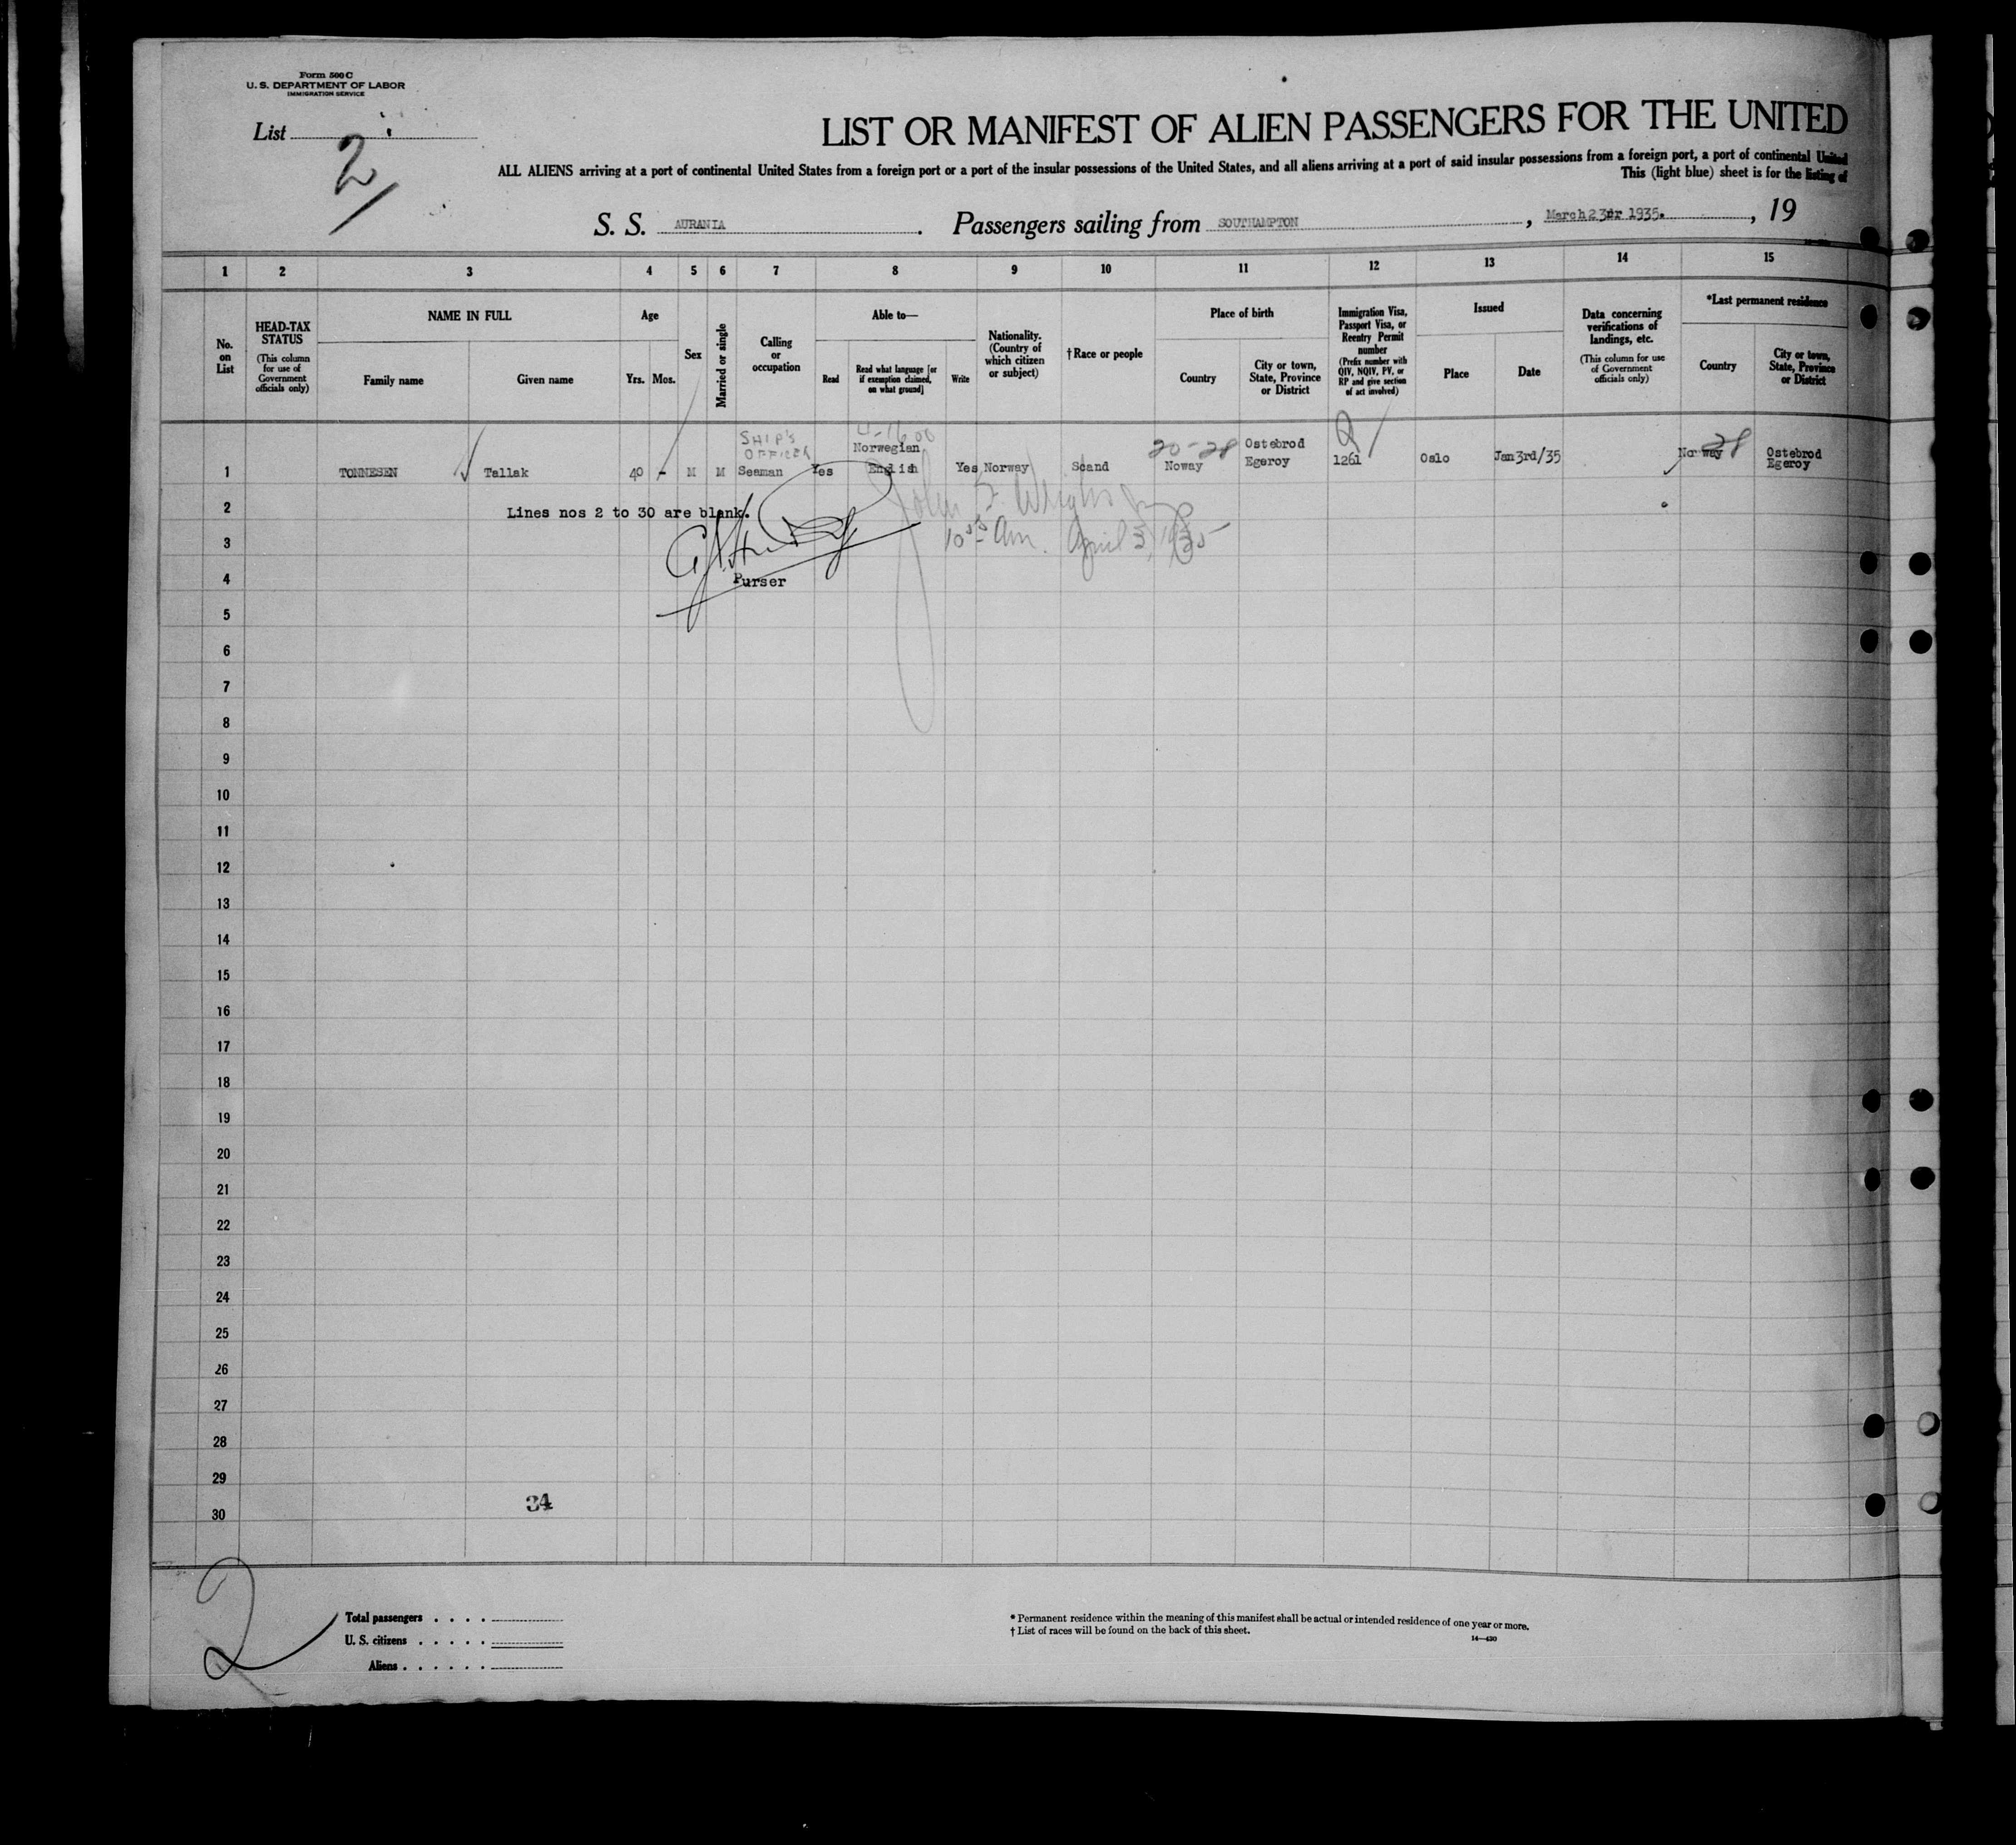 Form 500 C
U. S. DEPARTMENT OF LABOR
IMMIGRATION SERVICE
List
2
LIST OR MANIFEST OF ALIEN PASSENGERS FOR THE UNITED
ALL ALIENS arriving at a port of continental United States from a foreign port or a port of the insular possessions of the United States, and all aliens arriving at a port of said insular possessions from a foreign port, a port of continental United
This (light blue) sheet is for the listing of
S. S. AURANIA. Passengers sailing from SOUTHAMPTON, March 23dr 1935., 19
1 2 3 4 5 6 7 8 9 10 11 12 13 14 15
No. on List
HEAD-TAX STATUS
(This column for use of Government officials only)
NAME IN FULL
Family name Given name
Age
Yrs. Mos.
Sex
Married or single
Calling or occupation
Able to—
Read
Read what language [or if exemption claimed, on what ground]
Write
Nationality. (Country of which citizen or subject)
†Race or people
Place of birth
Country
City or town, State, Province or District
Immigration Visa, Passport Visa, or Reentry Permit number
(Prefix number with QIV, NQIV, PV, or RP and give section of act involved)
Issued
Place Date
Data concerning verifications of landings, etc.
(This column for use of Government officials only)
*Last permanent residence
Country
City or town, State, Province or District
SHIP'S OFFICER
Norwegian 20-28 Ostebrod Q 28
1 TONNESEN Tallak 40 - M M Seaman Yes English Yes Norway Scand Noway Egeroy 1261 Oslo Jan 3rd/35 Norway Ostebrod Egeroy
2 Lines nos 2 to 30 are blank.
John S. Wright
3 Am. April 3, 1935
4 Purser
5
6
7
8
9
10
11
12
13
14
15
16
17
18
19
20
21
22
23
24
25
26
27
28
29
30
34
2
Total passengers . . . .
U. S. citizens . . . . .
Aliens . . . . . .
* Permanent residence within the meaning of this manifest shall be actual or intended residence of one year or more.
† List of races will be found on the back of this sheet.
14—430